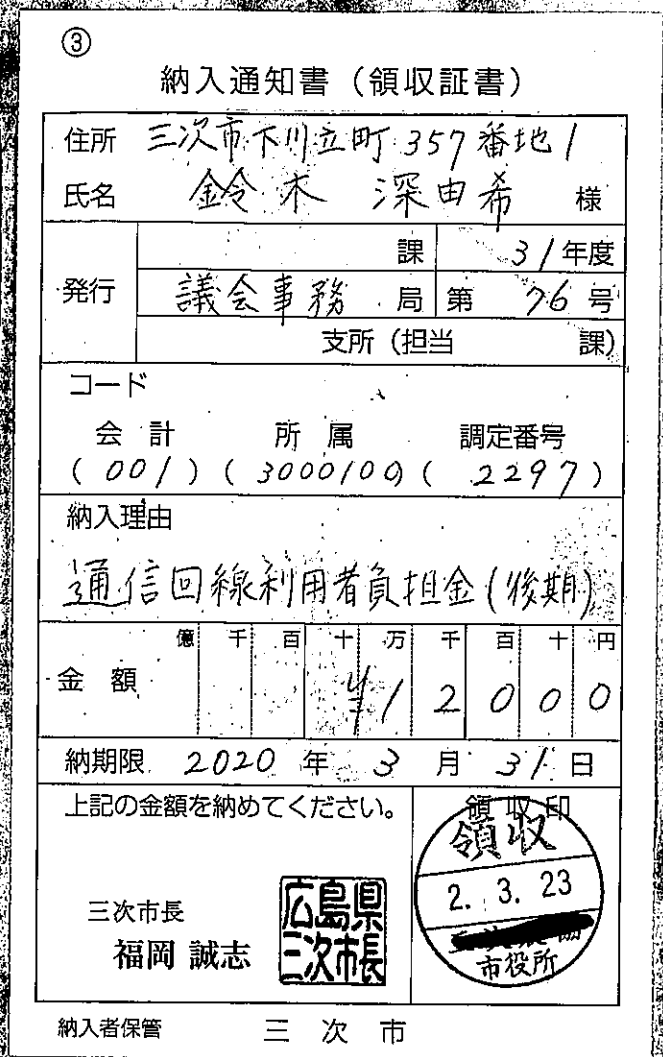 ③
納入通知書（領収証書）
住所 三次市下川立町357番地1
氏名 鈴木 深由希 様
課 31年度
発行 議会事務局 第 76号
支所（担当 課）
コード
会計 所属 調定番号
(001) (3000100) (2297)
納入理由
通信回線利用者負担金(後期)
億 千 百 十 万 千 百 十 円
金額 ¥12000
納期限 2020年3月31日
上記の金額を納めてください。
領収印
領収
2.3.23
市役所
三次市長
福岡 誠志
広島県
三次市長
納入者保管 三次市